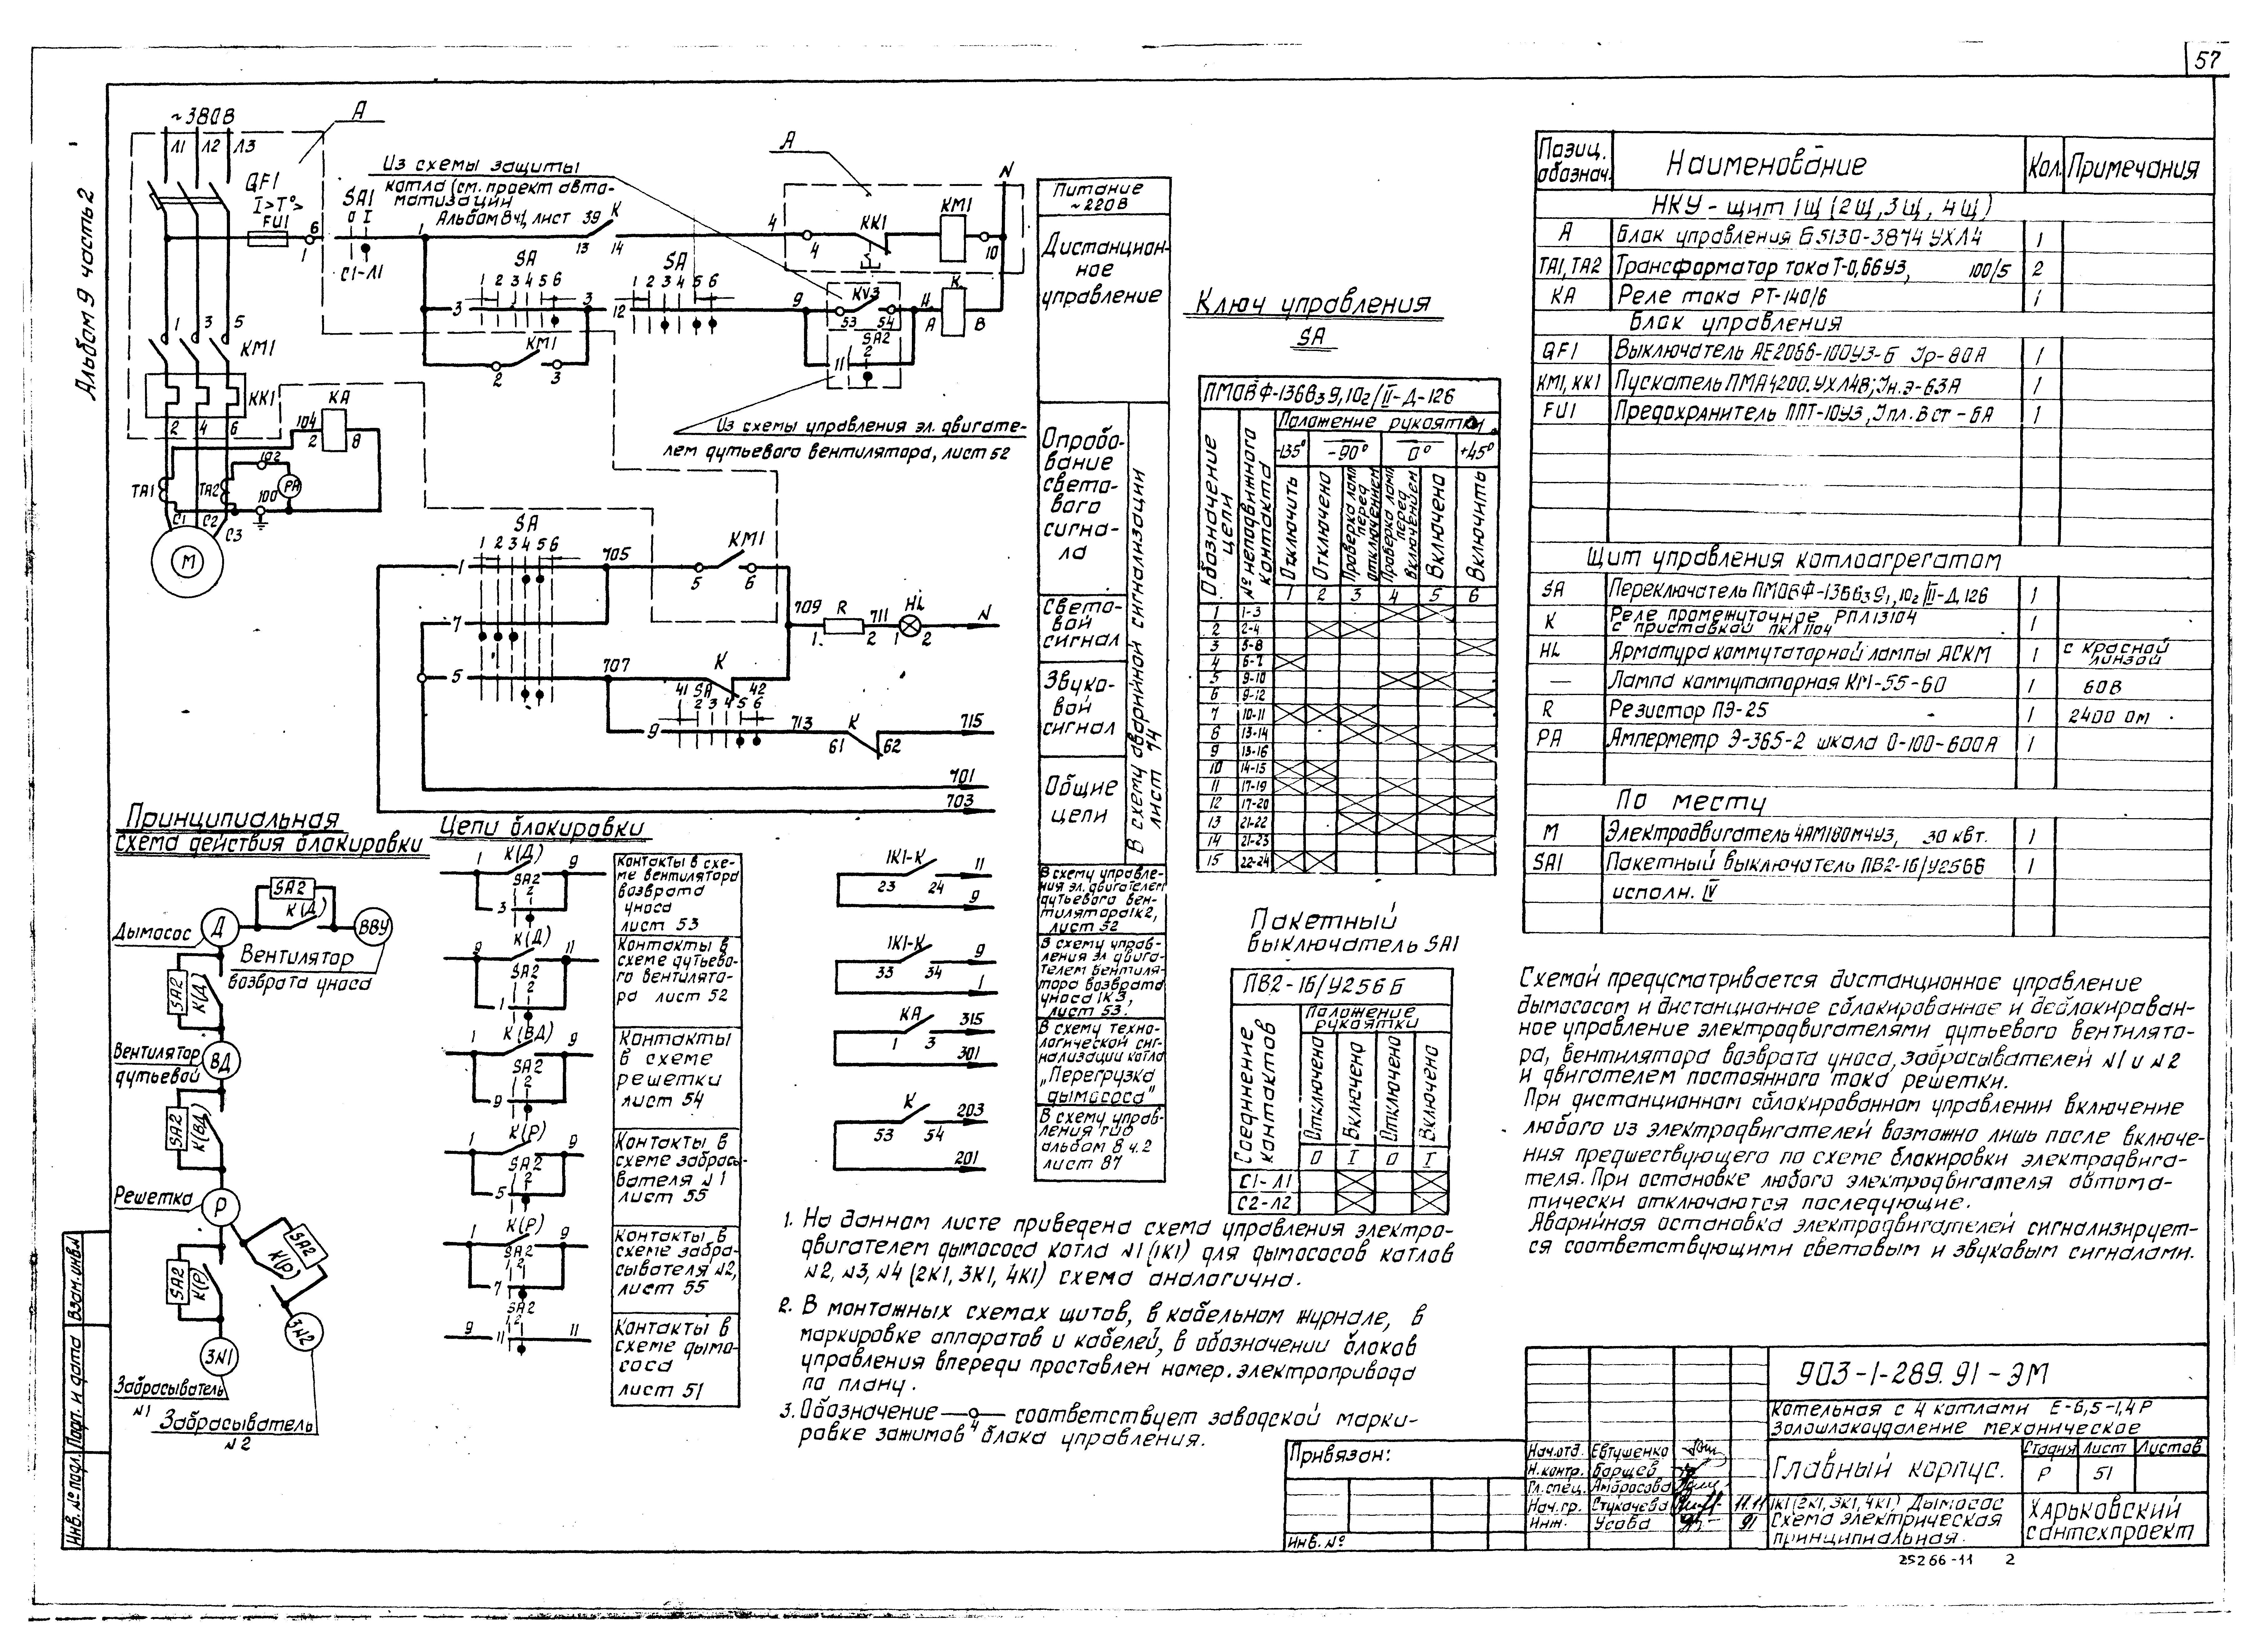 57
Альбом 9 часть 2
~380В
А
Л1 Л2 Л3
QF1
I> T°>
FU1
6
1
SA1
0 I
С1-Л1
Из схемы защиты
котла (см. проект авто-
матизации
Альбом 8ч1, лист 39
К
13 14
А
4
4
КК1
КМ1
10
N
1
SA
1 2 3 4 5 6
3
3
SA
1 2 3 4 5 6
12
9
KV3
53 54
SA2
2
11
4
А
К
В
КМ1
2 3
1 3 5
КМ1
КК1
2 4 6
КА
104
2 8
102
100
РА
ТА1
ТА2
С1 С2 С3
М
Из схемы управления эл. двигате-
лем дутьевого вентилятора, лист 52
SA
1 2 3 4 5 6
1
705
КМ1
5 6
7
709 R 711 HL
1 2 1 2
N
5
707
К
41 42
SA
1 2 3 4 5 6
9
713
К
61 62
715
701
703
Питание
~220В
Дистанцион-
ное
управление
Опробо-
вание
свето-
вого
сигна-
ла
Свето-
вой
сигнал
Звуко-
вой
сигнал
Общие
цепи
В схему аварийной сигнализации
лист 74
Принципиальная
схема действия блокировки
SA2
К(Д)
Дымосос
Д
ВВУ
Вентилятор
возврата уноса
SA2
К(Д)
Вентилятор
дутьевой
ВД
SA2
К(ВД)
Решетка
Р
SA2
К(Р)
SA2
К(Р)
ЗN1
ЗN2
Забрасыватель
N1
Забрасыватель
N2
Цепи блокировки
1 К(Д) 9
SA2
2
3
Контакты в схе-
ме вентилятора
возврата
уноса
лист 53
9 К(Д) 11
SA2
2
1
Контакты в
схеме дутьево-
го вентилято-
ра лист 52
1 К(ВД) 9
SA2
2
9
Контакты
в схеме
решетки
лист 54
1 К(Р) 9
SA2
2
5
Контакты в
схеме забрасы-
вателя N1
лист 55
1 К(Р) 9
SA2
1 2
7
Контакты в
схеме забра-
сывателя N2,
лист 55
SA2
1 2
9 11 11
Контакты в
схеме дымо-
соса
лист 51
1К1-К
23 24
11
9
В схему управле-
ния эл. двигателем
дутьевого вен-
тилятора1К2,
лист 52
1К1-К
33 34
9
1
В схему управ-
ления эл двига-
телем вентиля-
тора возврата
уноса 1К3,
лист 53.
КА
1 3
315
301
В схему техно-
логической сиг-
нализации котла
„Перегрузка
дымососа"
К
53 54
203
201
В схему управ-
ления ТИФ
альбом 8 ч.2
лист 87
Ключ управления
SA
ПМОВФ-136В₃9,10₂/II-Д-126
Обозначение цепи
№ неподвижного контакта
Положение рукоятки
-135° -90° 0° +45°
Отключить
Отключено
Проверка ламп перед отключением
Проверка ламп перед включением
Включено
Включить
1 2 3 4 5 6
1 1-3
2 2-4
3 5-8
4 6-7
5 9-10
6 9-12
7 10-11
8 13-14
9 13-16
10 14-15
11 17-19
12 17-20
13 21-22
14 21-23
15 22-24
Пакетный
выключатель SA1
ПВ2-16/У256Б
Соединение контактов
Положение
рукоятки
Отключено
Включено
Отключено
Включено
0 I 0 I
С1-Л1
С2-Л2
1. На данном листе приведена схема управления электро-
двигателем дымососа котла N1 (1К1) для дымососов котлов
N2, N3, N4 (2К1, 3К1, 4К1) схема аналогична.
2. В монтажных схемах щитов, в кабельном журнале, в
маркировке аппаратов и кабелей, в обозначении блоков
управления впереди проставлен номер.электропривода
по плану.
3. Обозначение —о— соответствует заводской марки-
4
ровке зажимов блока управления.
Позиц.
обознач.
Наименование
Кол.
Примечания
НКУ - щит 1Щ (2Щ, 3Щ, 4Щ)
А Блок управления Б5130-3874 УХЛ4 1
ТА1, ТА2 Трансформатор тока Т-0,66У3, 100/5 2
КА Реле тока РТ-140/6 1
Блок управления
QF1 Выключатель АЕ2066-100У3-Б Јр-80А 1
КМ1, КК1 Пускатель ПМА4200.УХЛ4В; Јн.э-63А 1
FU1 Предохранитель ППТ-10У3, Јпл.вст-6А 1
Щит управления котлоагрегатом
SA Переключатель ПМОВФ-136В₃9₁,10₂/II-Д126 1
К Реле промежуточное РПЛ13104
с приставкой ПКЛ 1104 1
HL Арматура коммутаторной лампы АСКМ 1 с красной
линзой
— Лампа коммутаторная КМ-55-60 1 60В
R Резистор ПЭ-25 1 2400 ом
РА Амперметр Э-365-2 шкала 0-100-600А 1
По месту
М Электродвигатель 4АМ180М4У3, 30 квт. 1
SA1 Пакетный выключатель ПВ2-16/У256Б 1
исполн. IV
Схемой предусматривается дистанционное управление
дымососом и дистанционное сблокированное и деблокирован-
ное управление электродвигателями дутьевого вентилято-
ра, вентилятора возврата уноса, забрасывателей N1 и N2
и двигателем постоянного тока решетки.
При дистанционном сблокированном управлении включение
любого из электродвигателей возможно лишь после включе-
ния предшествующего по схеме блокировки электродвига-
теля. При остановке любого электродвигателя автома-
тически отключаются последующие.
Аварийная остановка электродвигателей сигнализирует-
ся соответствующими световым и звуковым сигналами.
Привязан:
Инв. №
903-1-289.91-ЭМ
Котельная с 4 котлами Е-6,5-1,4Р
Золошлакоудаление механическое
Нач.отд. Евтушенко
Н.контр. Борщев
Гл.спец. Амбросова
Нач.гр. Стукачева 11.11
Инж. Усова 91
Главный корпус.
Стадия Лист Листов
Р 51
1К1 (2К1, 3К1, 4К1) Дымосос
Схема электрическая
принципиальная.
Харьковский
сантехпроект
25266-11 2
Инв.№ подл. Подп. и дата Взам.инв.N